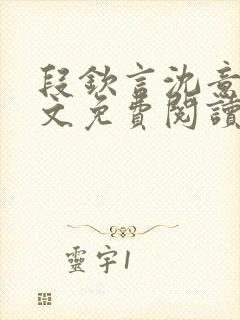 段欽言沈意
文免費閱讀
靈宇1